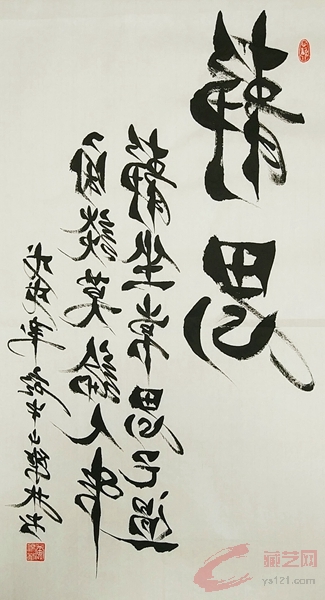 静思
静坐常思己過
闲谈莫論人非
戊戌年
藏艺网
ys121.com